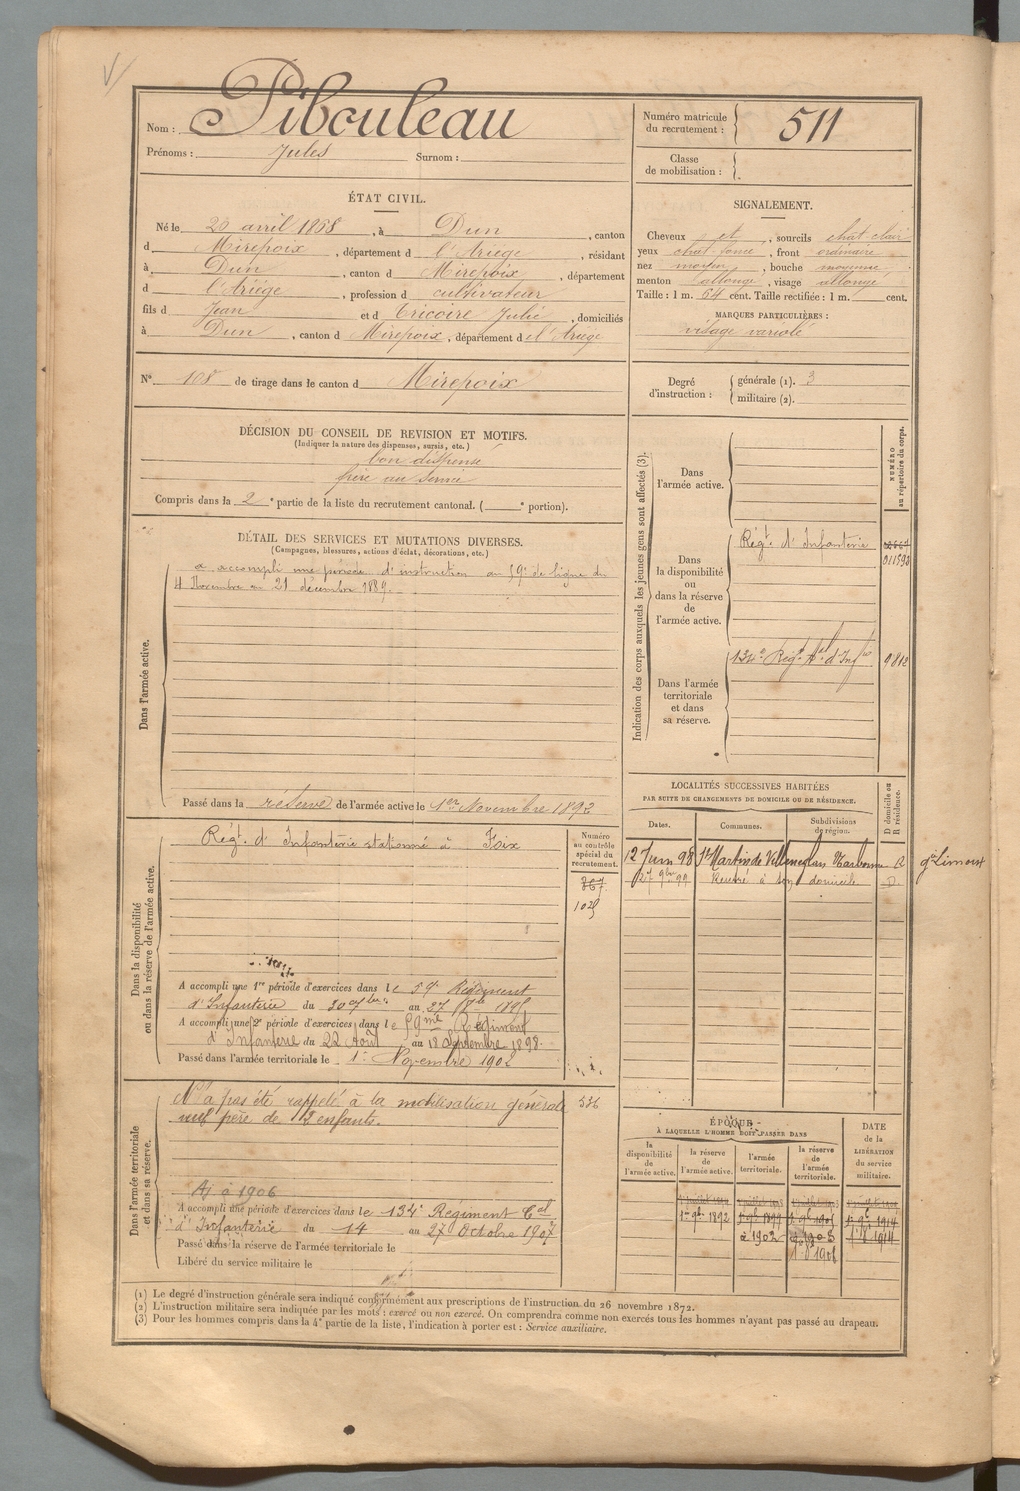 Nom : Pibouleau
Prénoms : Jules Surnom :
Numéro matricule du recrutement : 511
Classe de mobilisation :
ÉTAT CIVIL.
Né le 20 avril 1868, à Dun, canton
d Mirepoix, département d l'Ariège, résidant
à Dun, canton d Mirepoix, département
d l'Ariège, profession d cultivateur
fils d Jean et d Tricoire Julie, domiciliés
à Dun, canton d Mirepoix, département d el'Ariège
SIGNALEMENT.
Cheveux et, sourcils chat clair
yeux chat fonce, front ordinaire
nez moyen, bouche moyenne
menton allongé, visage allongé
Taille : 1 m. 54 cent. Taille rectifiée : 1 m. cent.
MARQUES PARTICULIÈRES :
visage variolé
N° 108 de tirage dans le canton d Mirepoix
Degré d'instruction : générale (1). 3
militaire (2).
DÉCISION DU CONSEIL DE REVISION ET MOTIFS.
(Indiquer la nature des dispenses, sursis, etc.)
bon dispensé
frère au service
Compris dans la 2e partie de la liste du recrutement cantonal. ( e portion).
DÉTAIL DES SERVICES ET MUTATIONS DIVERSES.
(Campagnes, blessures, actions d'éclat, décorations, etc.)
Dans l'armée active.
a accompli une période d'instruction au 59e de ligne du
4 Novembre au 21 décembre 1889.
Passé dans la réserve de l'armée active le 1er Novembre 1892
Indication des corps auxquels les jeunes gens sont affectés (3).
NUMÉRO au répertoire du corps.
Dans l'armée active.
Dans la disponibilité ou dans la réserve de l'armée active.
Régt. d'Infanterie
011590
Dans l'armée territoriale et dans sa réserve.
134e Régt. tal d'Infie 9812
LOCALITÉS SUCCESSIVES HABITÉES
PAR SUITE DE CHANGEMENTS DE DOMICILE OU DE RÉSIDENCE.
Dates. Communes. Subdivisions de région. D domicile ou R résidence.
12 Juin 98 St Martin de Villereglan Narbonne R
27 9bre 99 Rentré à son domicile D
Dans la disponibilité ou dans la réserve de l'armée active.
Régt. d'Infanterie stationné à Foix
Numéro au contrôle spécial du recrutement.
367
1025
A accompli une 1re période d'exercices dans le 59e Régiment
d'Infanterie du 30 au 27 1895
A accompli une 2e période d'exercices dans le 59me Régiment
d'Infanterie du 22 Août au 18 Septembre 1898.
Passé dans l'armée territoriale le 1er Novembre 1902
Dans l'armée territoriale et dans sa réserve.
N'a pas été rappelé à la mobilisation générale 536
veuf père de 2 enfants.
Aj à 1906
A accompli une période d'exercices dans le 134e Régiment tal
d'Infanterie du 14 au 27 Octobre 1907
Passé dans la réserve de l'armée territoriale le
Libéré du service militaire le
ÉPOQUE
À LAQUELLE L'HOMME DOIT PASSER DANS
la disponibilité de l'armée active. la réserve de l'armée active. l'armée territoriale. la réserve de l'armée territoriale. DATE de la LIBÉRATION du service militaire.
1er 9bre 1892 1er 9bre 1899 1er 9bre 1905 1er 9bre 1914
à 1902
(1) Le degré d'instruction générale sera indiqué conformément aux prescriptions de l'instruction du 26 novembre 1872.
(2) L'instruction militaire sera indiquée par les mots : exercé ou non exercé. On comprendra comme non exercés tous les hommes n'ayant pas passé au drapeau.
(3) Pour les hommes compris dans la 4e partie de la liste, l'indication à porter est : Service auxiliaire.